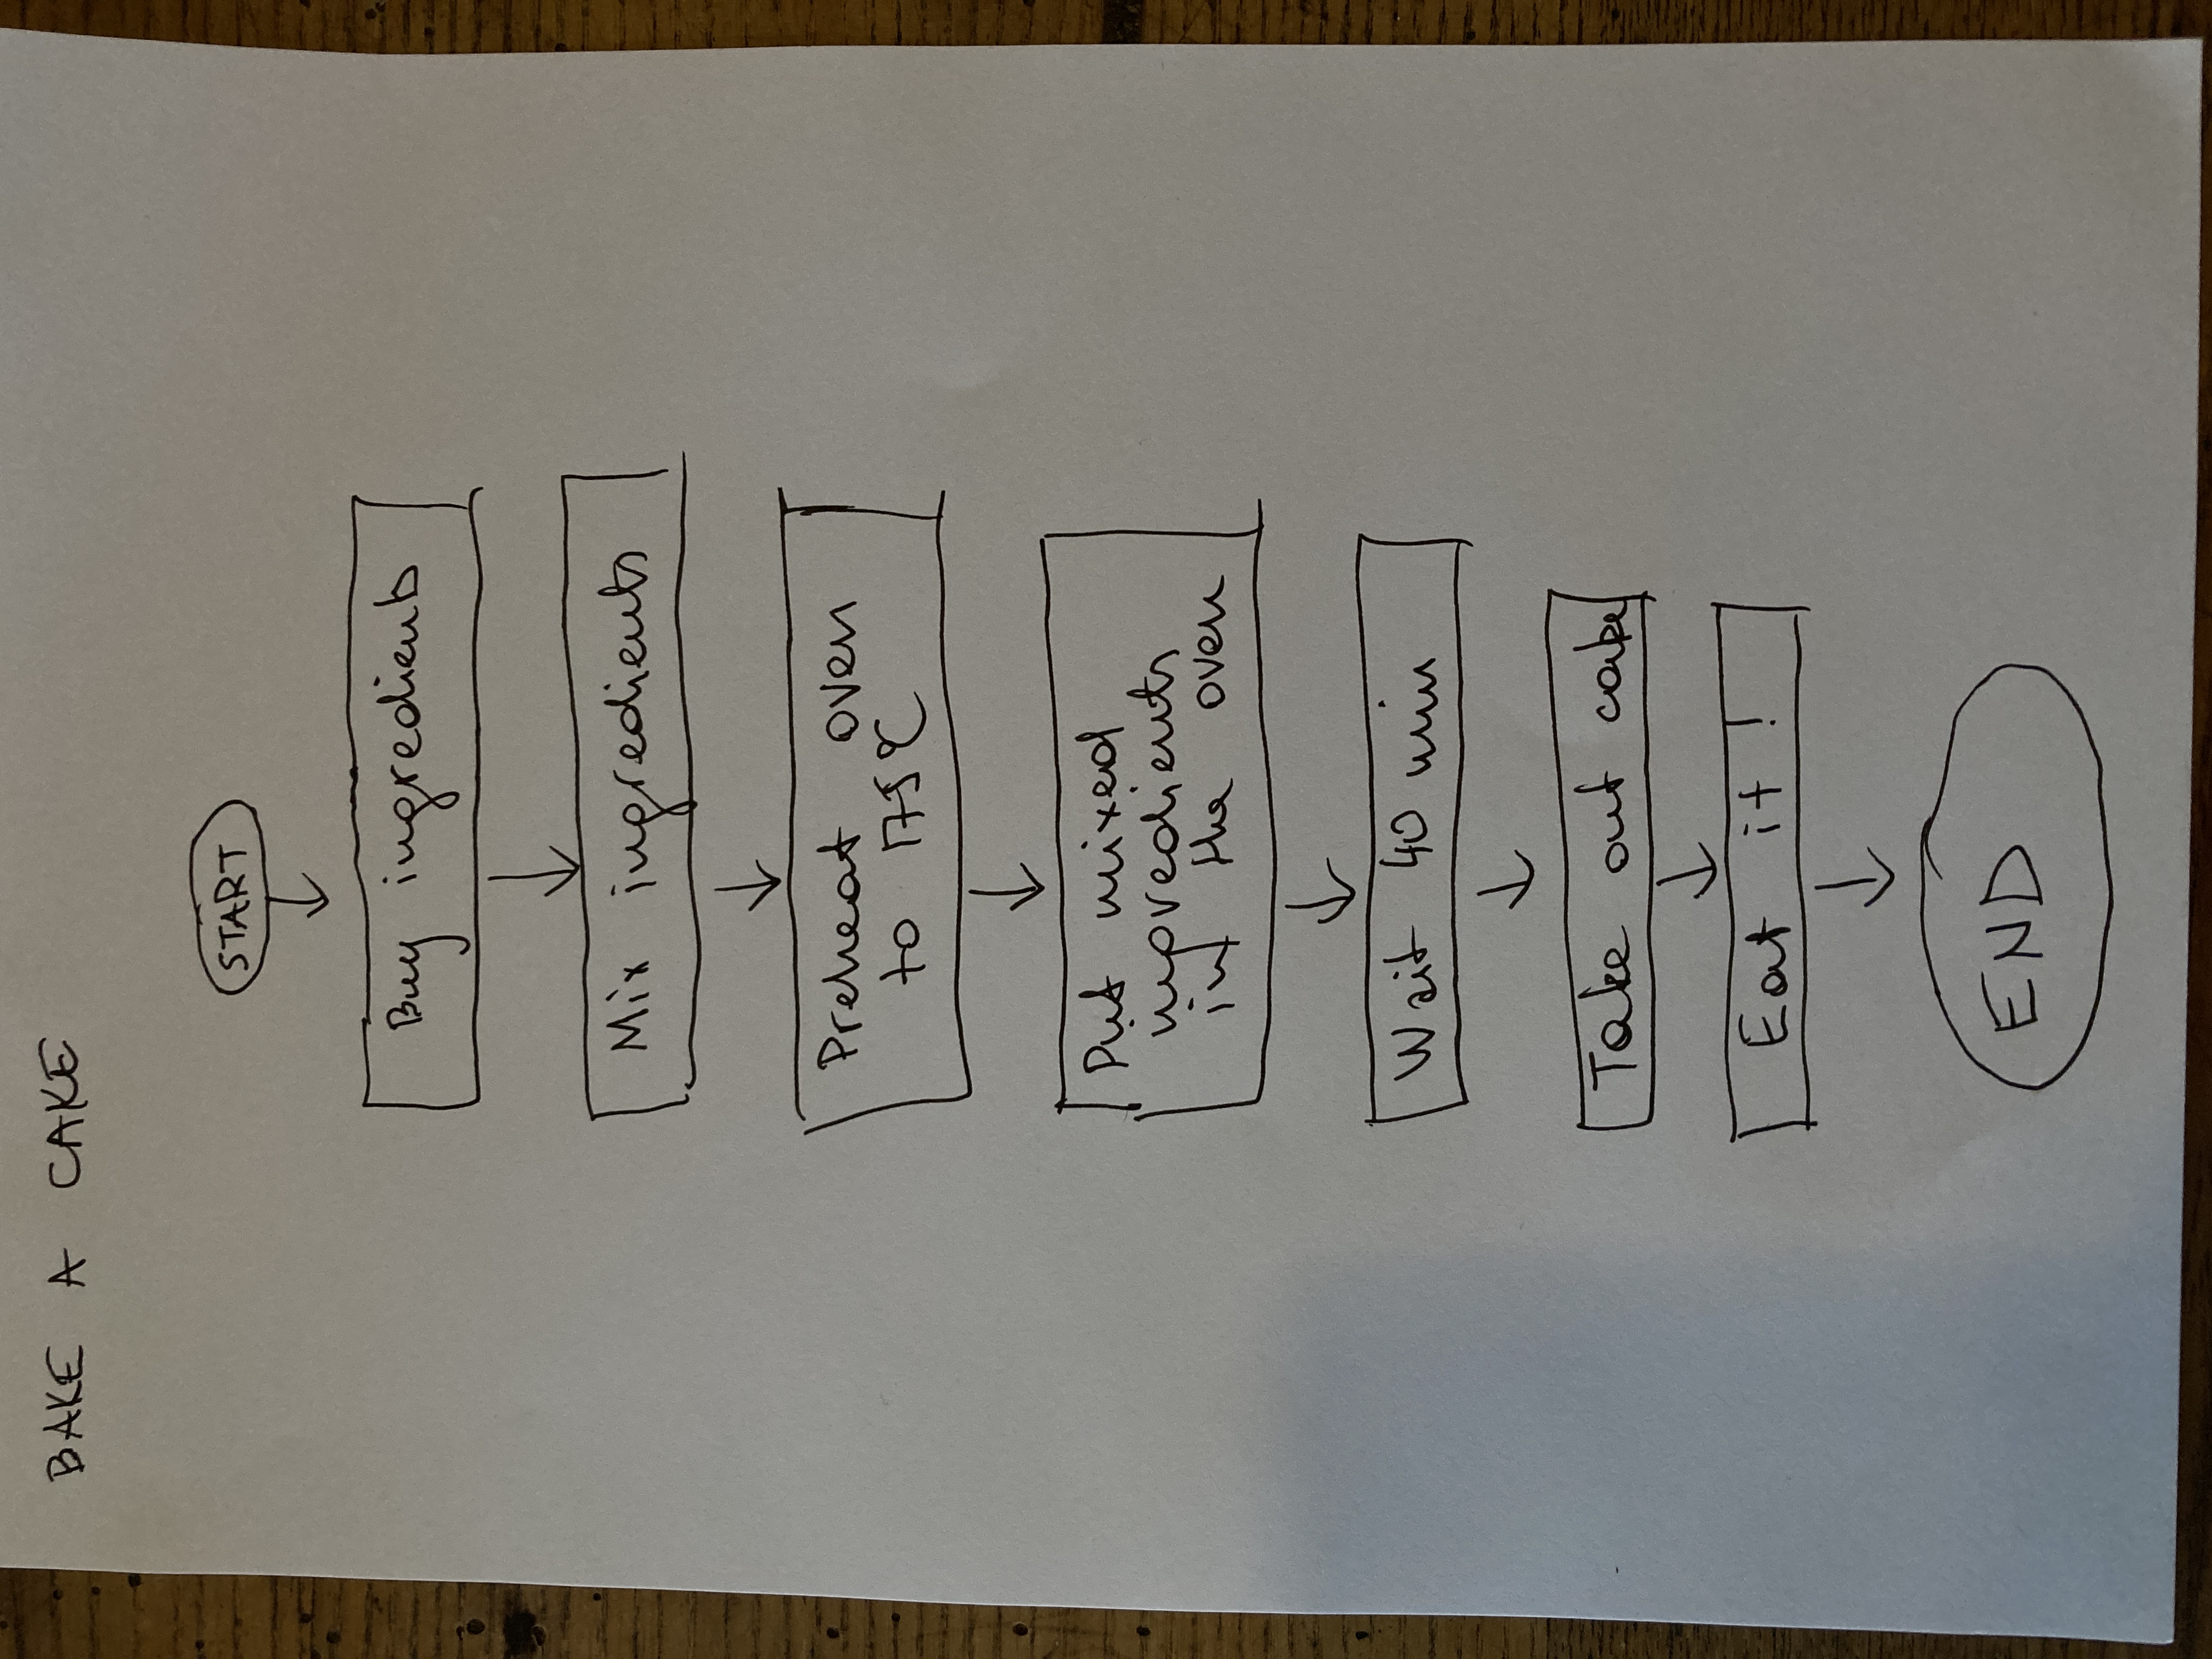 BAKE A CAKE
START
Buy ingredients
Mix ingredients
Preheat oven
to 175°C
Put mixed
ingredients
in the oven
Wait 40 min
Take out cake
Eat it!
END